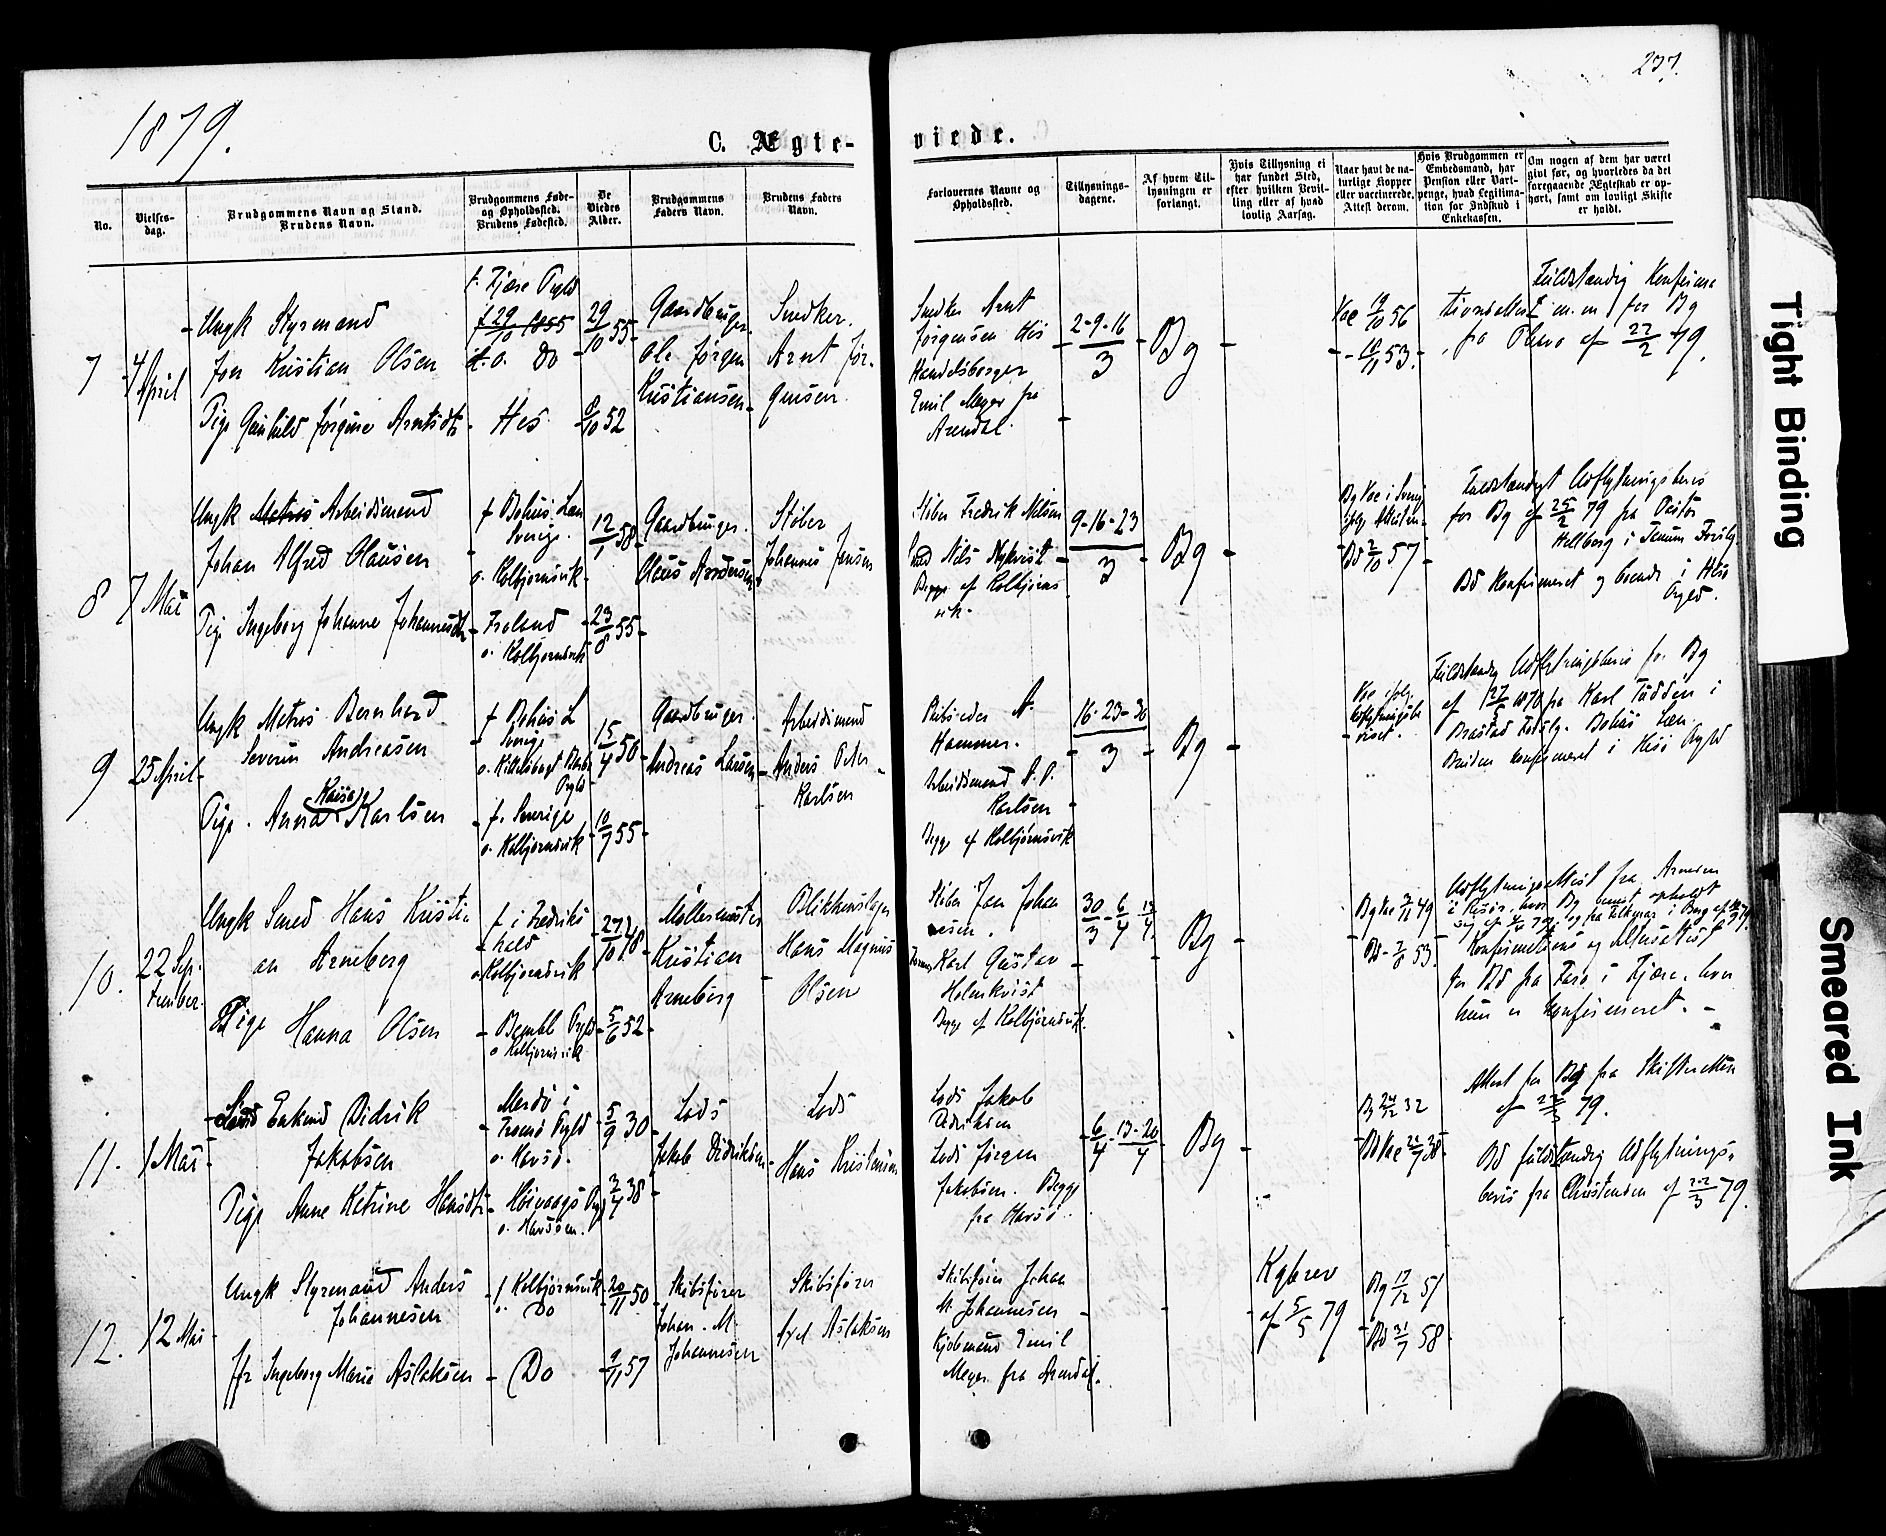 1879.
237.
C. Ægte-
viede.
No.
Vielses-
dag.
Brudgommens Navn og Stand.
Brudens Navn.
Brudgommens Føde-
og Opholdssted.
Brudens Fødested.
De
Viedes
Alder.
Brudgommens
Faders Navn.
Brudens Faders
Navn.
Forlovernes Navne og
Opholdssted.
Tillysnings-
dagene.
Af hvem Til-
lysningen er
forlangt.
Hvis Tillysning ei
har fundet Sted,
efter hvilken Bevil-
ling eller af hvad
lovlig Aarsag.
Naar havt de na-
turlige Kopper
eller vaccinerede.
Attest derom.
Hvis Brudgommen er
Embedsmand, har
Pension eller Vart-
penge, hvad Legitima-
tion for Indskud i
Enkekassen.
Om nogen af dem har været
givt før, og hvorledes da det
foregaaende Ægteskab er op-
hørt, samt om lovligt Skifte
er holdt.
7
4 April
Ungk Styrmand
Jon Kristian Olsen
Pige Gunhild Jørgine Arntsdtr
f. Tjøse Prgld
f 29/10 1855
Do
Hes
29/10 55
8/10 52
Gaardbruger
Ole Jørgen
Kristiansen
Snedker
Arnt Jør-
gensen
Snedker Arnt
Jørgensen His
Handelsborger
Emil Meyer fra
Arendal.
2-9-16/3
Bg
Vac 19/10 56
53
Fuldstændig
for Bg
fra af 22/2 79
8
7 Mai
Ungk Matros Arbeidsmand
Johan Alfred Olausen
Pige Ingeborg Johanne Johannesdtr
f Bohus Len
Sverige.
o. Kolbjørnsvik
Froland
o. Kolbjørnsvik
12/1 58
23/8 55
Gaardbruger.
Olaus Andersen
Støber
Johannes Jensen
Støber Fredrik Nilsen
Smed Nils Nykvist
Begge af Kolbjørns
vik.
9-16-23/3
Bg
Bg Vac i Sverig
ifølg Attesten
Bd 2/10 57
Fuldstændigt Udflytningsbevis
for Bg af 25/2 79 fra Pastor
Hellberg i Tanum
Bd konfirmeret og boende i Hisø
Prgld.
9
25 April
Ungk Matros Bernhard
Severin Andreasen
Pige Anna Karlsen
f Bohus L
Sverige
Prgld
f. Sverige
o. Kolbjørnsvik
15/4 56
10/7 55
Gaardbruger
Andreas Larsen
Arbeidsmand
Anders Peter
Karlsen
A.
Hammer.
Arbeidsmand A. P.
Karlsen
Begge af Kolbjørnsvik
16-23-30/3
Bg
Vac ifølg.
Udflytningsbe
viset.
Fuldstændig Udflytningsbevis for Bg
af fra Karl Tuddén i
Brastad Bohus Len.
Bruden konfirmeret i Hisø Prgld
10.
22 Sep-
tember
Ungk Smed Hans Kristi
an Arneberg
Pige Hanna Olsen
f i Fredriks
hald
o. Kolbjørnsvik
Bamble Prgld
o Kolbjørnsvik
27/10 48
5/6 52
Møllermester
Kristian
Arneberg
Blikkenslager
Hans Magnus
Olsen
Støber Jan Johan
nesen.
Karl Gustav
Holmkvist
Begge af Kolbjørnsvik.
30/3 - 6/4 - 13/4
Bg
Bg Vac 49
Bd 53.
Udflytningsattest fra
Konfirmations og
for Bd fra i Tjøse. hvor
hun er konfirmeret.
11.
1 Mai
Lods Enkemd Didrik
Jakobsen
Pige Anne Katrine Hansdtr
Merdø i
Tromø Prgld
o. Havsø.
Høivaags Prgld
o. Havsøen.
5/9 30
3/4 38
Lods
Jakob Didriksen
Lods
Hans Kristensen
Lods Jakob
Didriksen
Lods Jørgen
Jakobsen. Begge
fra Havsø.
6/4 - 13-20/4
Bg
Bg 24/12 32
Bd Vac 38
Attest for Bg fra Skifteretten
af 79.
Bd fuldstændig Udflytnings-
bevis fra af 22/3 79.
12.
12 Mai
Ungk Styrmand Anders
Johannesen
Jfr Ingeborg Marie Aslaksen
f Kolbjørnsvik
o. Do
Do
20/11 50
9/11 57
Skibsfører
Johan. M.
Johannesen
Skibsfører
Axel Aslaksen
Skibsfører Johan
M. Johannesen
Kjøbmand Emil
Meyer fra Arendal.
Kgbrev
af 5/5 79
Bg 17/12 51
Bd 21/7 58
Tight Binding
Smeared Ink